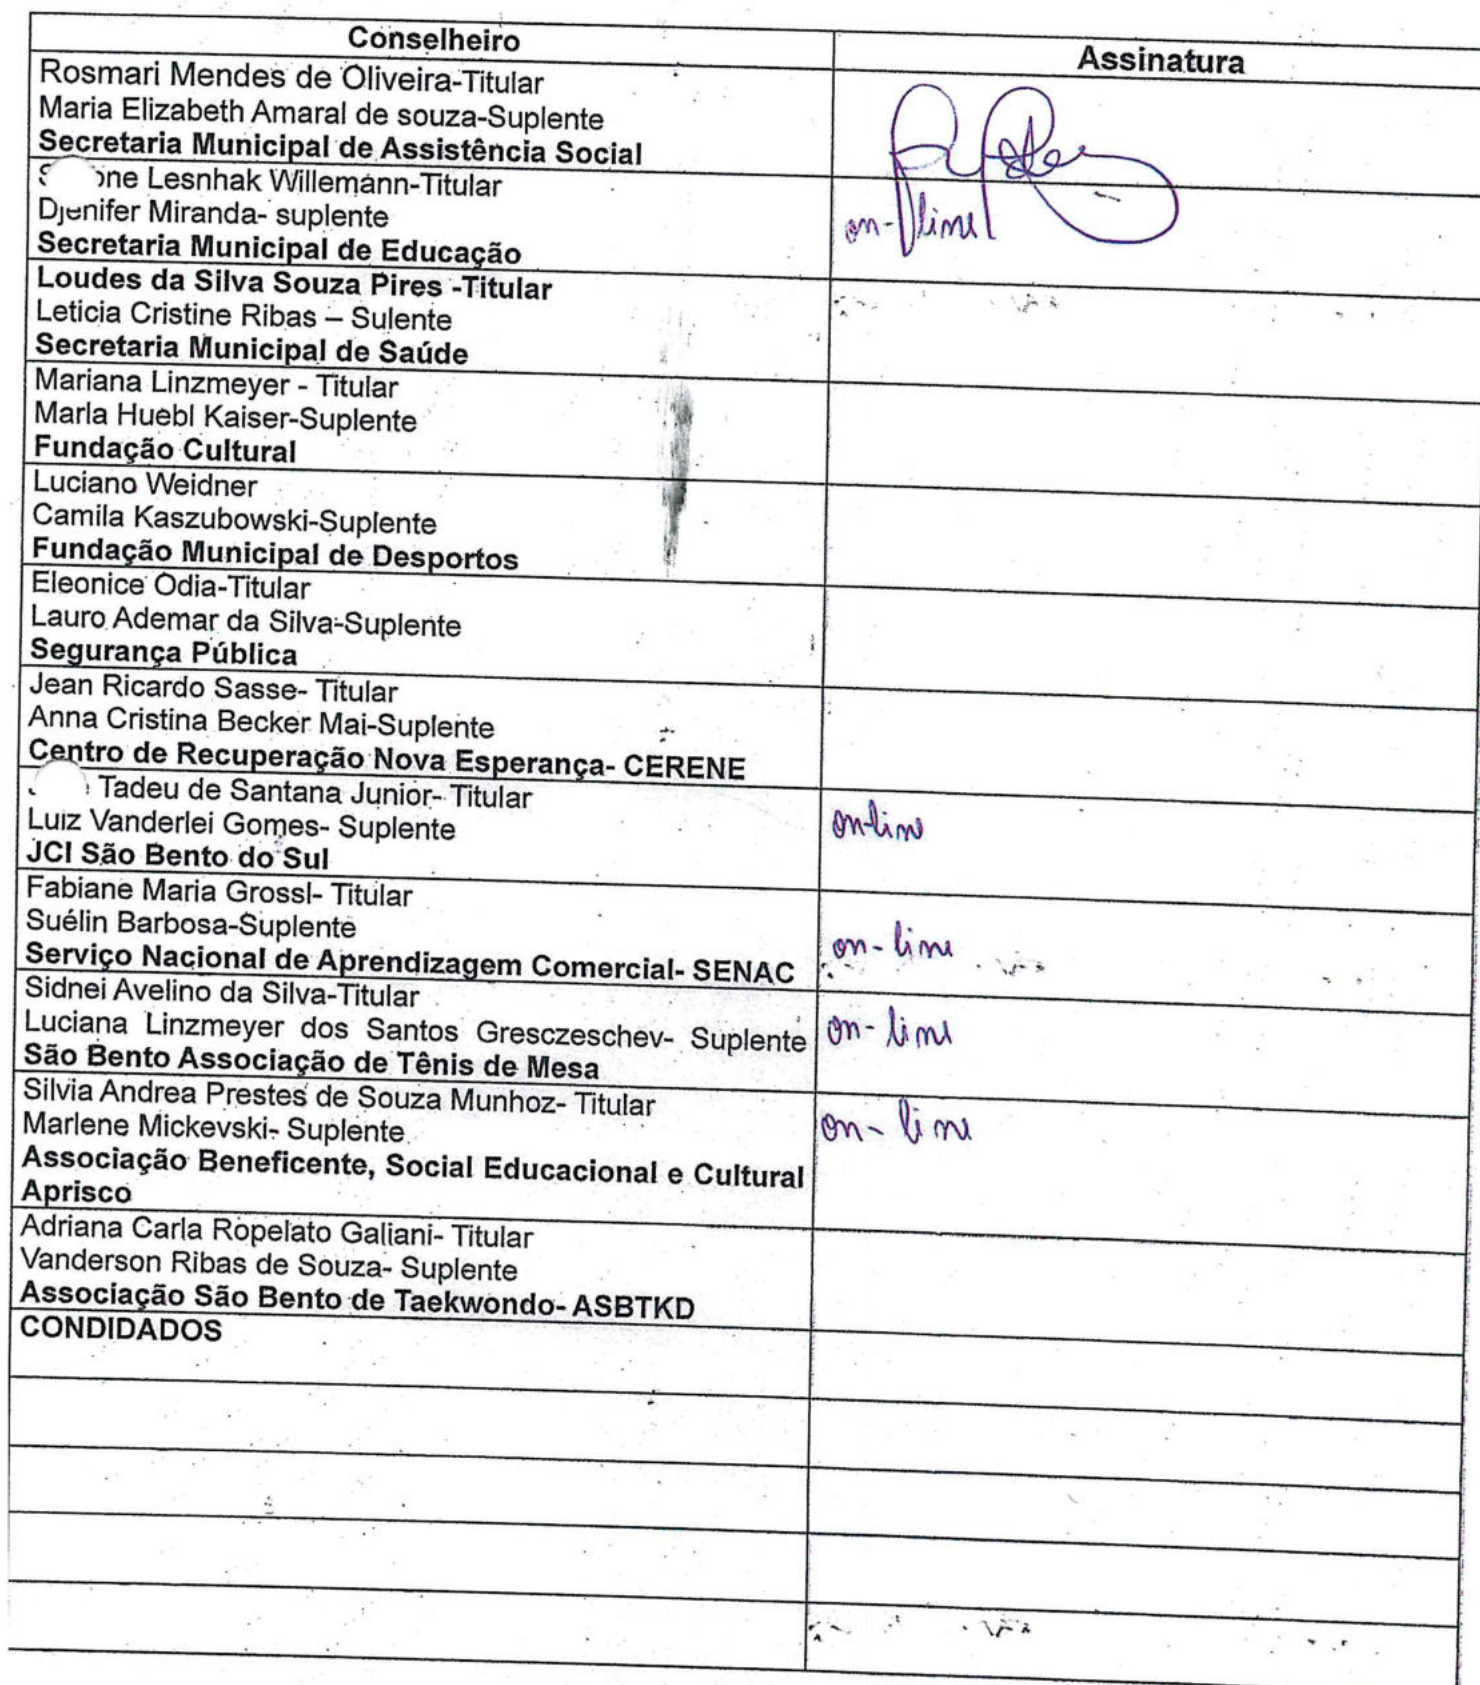 Conselheiro
Assinatura
Rosmari Mendes de Oliveira-Titular
Maria Elizabeth Amaral de souza-Suplente
Secretaria Municipal de Assistência Social
Lesnhak Willemann-Titular
Djenifer Miranda- suplente
Secretaria Municipal de Educação
on-line
Loudes da Silva Souza Pires -Titular
Leticia Cristine Ribas – Sulente
Secretaria Municipal de Saúde
Mariana Linzmeyer - Titular
Marla Huebl Kaiser-Suplente
Fundação Cultural
Luciano Weidner
Camila Kaszubowski-Suplente
Fundação Municipal de Desportos
Eleonice Odia-Titular
Lauro Ademar da Silva-Suplente
Segurança Pública
Jean Ricardo Sasse- Titular
Anna Cristina Becker Mai-Suplente
Centro de Recuperação Nova Esperança- CERENE
Tadeu de Santana Junior- Titular
Luiz Vanderlei Gomes- Suplente
JCI São Bento do Sul
on-line
Fabiane Maria Grossl- Titular
Suélin Barbosa-Suplente
Serviço Nacional de Aprendizagem Comercial- SENAC
on-line
Sidnei Avelino da Silva-Titular
Luciana Linzmeyer dos Santos Gresczeschev- Suplente
São Bento Associação de Tênis de Mesa
on-line
Silvia Andrea Prestes de Souza Munhoz- Titular
Marlene Mickevski- Suplente
Associação Beneficente, Social Educacional e Cultural
Aprisco
on-line
Adriana Carla Ropelato Galiani- Titular
Vanderson Ribas de Souza- Suplente
Associação São Bento de Taekwondo- ASBTKD
CONDIDADOS